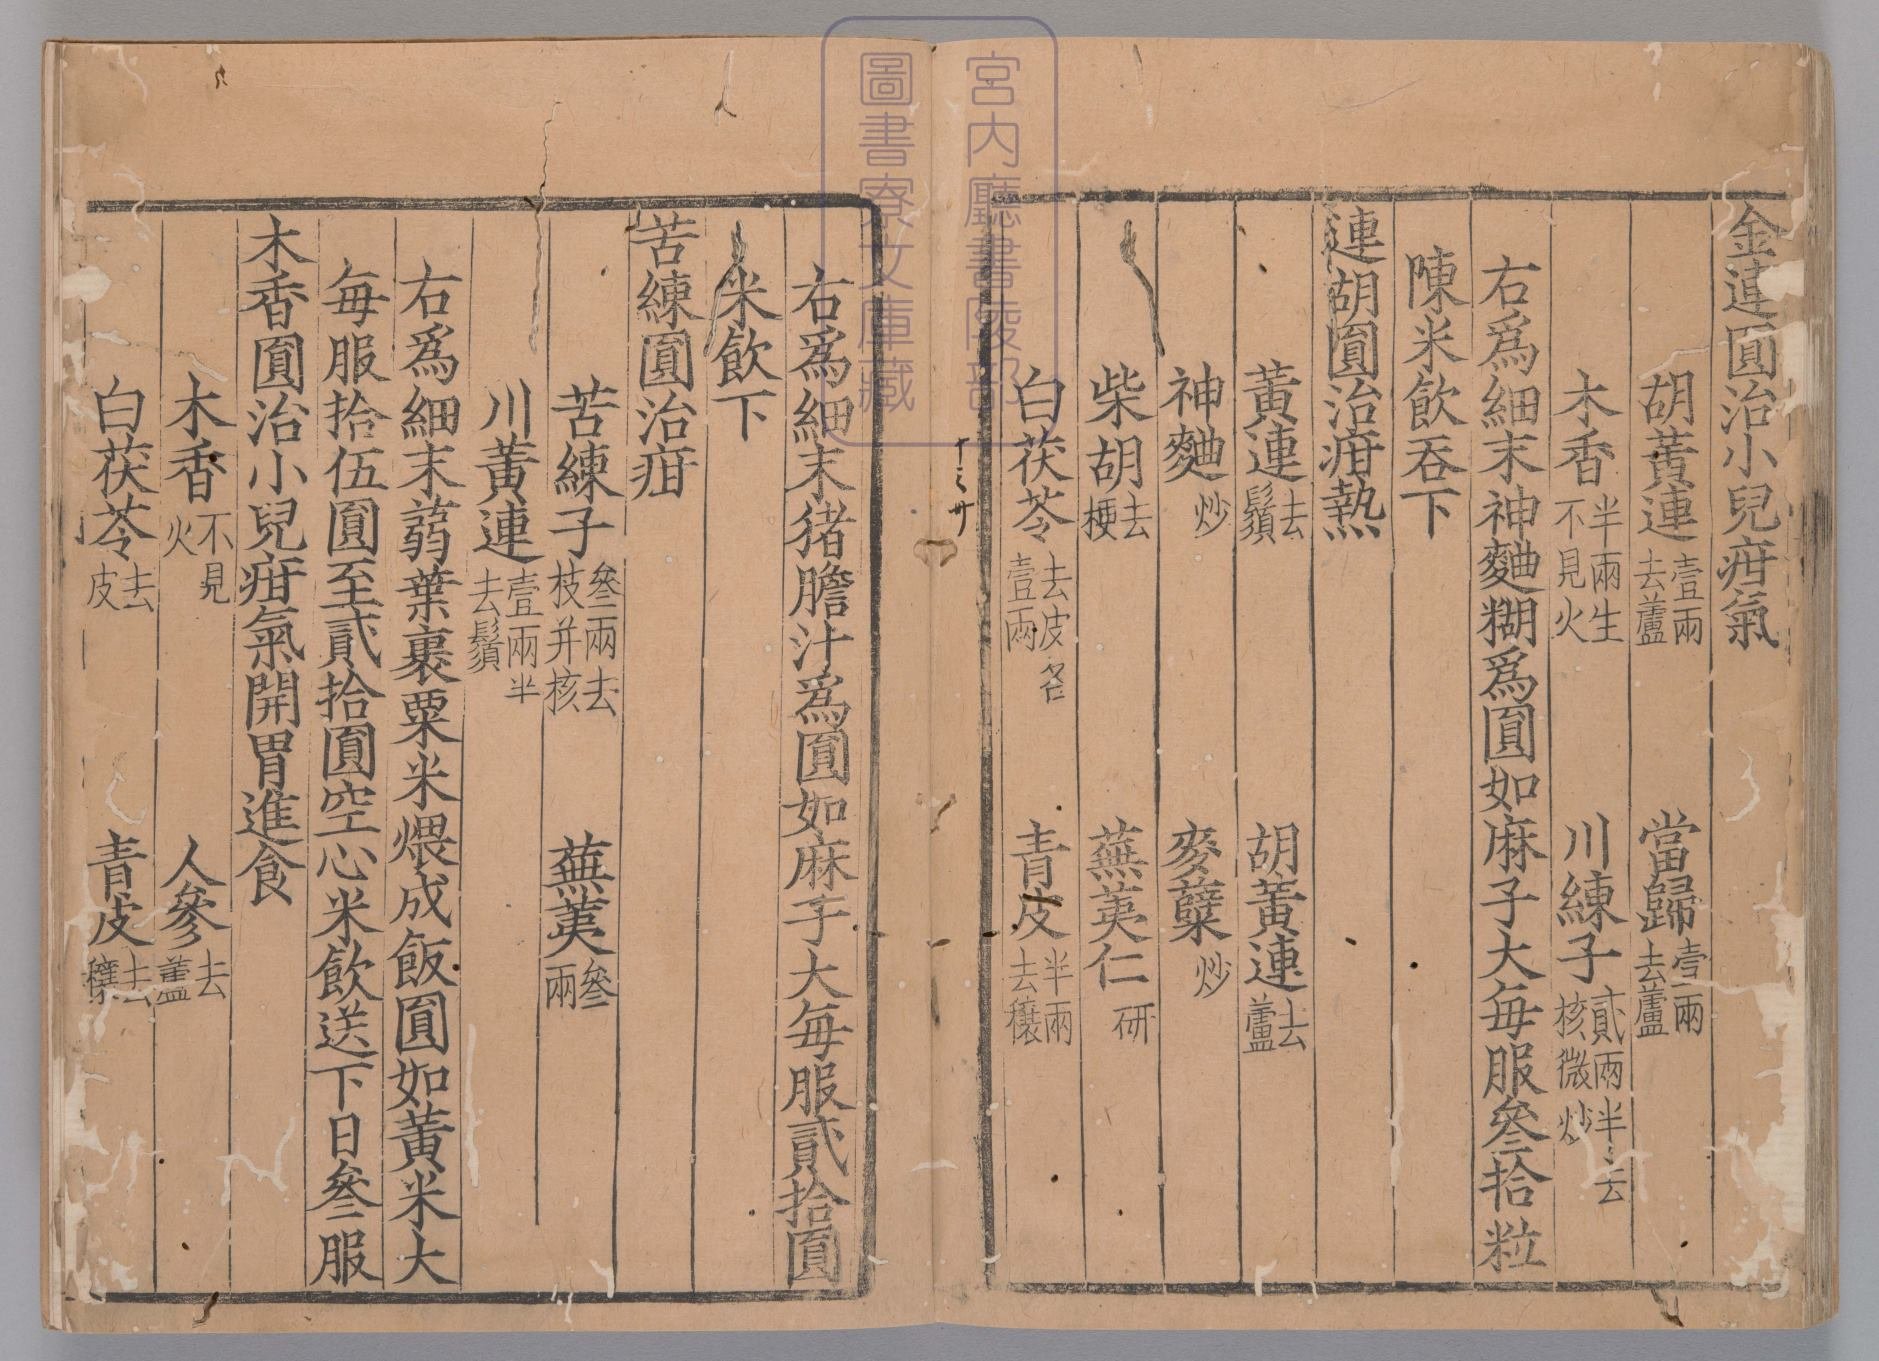 金連圓治小兒疳氣
胡黃連壹兩去蘆 當歸壹兩去蘆
木香半兩生不見火 川練子貳兩半去核微炒
右爲細末神麯糊爲圓如麻子大每服叄拾粒
陳米飲吞下
連胡圓治疳熱
黃連去鬚 胡黃連去蘆
神麯炒 麥蘗炒
柴胡去梗 蕪荑仁研
白茯苓去皮各壹兩 青皮半兩去穰
十之卅
右爲細末猪膽汁爲圓如麻子大每服貳拾圓
米飲下
苦練圓治疳
苦練子叄兩去枝并核 蕪荑叄兩
川黃連壹兩半去鬚
右爲細末蒻葉裹粟米煨成飯圓如黃米大
每服拾伍圓至貳拾圓空心米飲送下日叄服
木香圓治小兒疳氣開胃進食
木香不見火 人參去蘆
白茯苓去皮 青皮去穰
宮內廳書陵部
圖書寮文庫藏